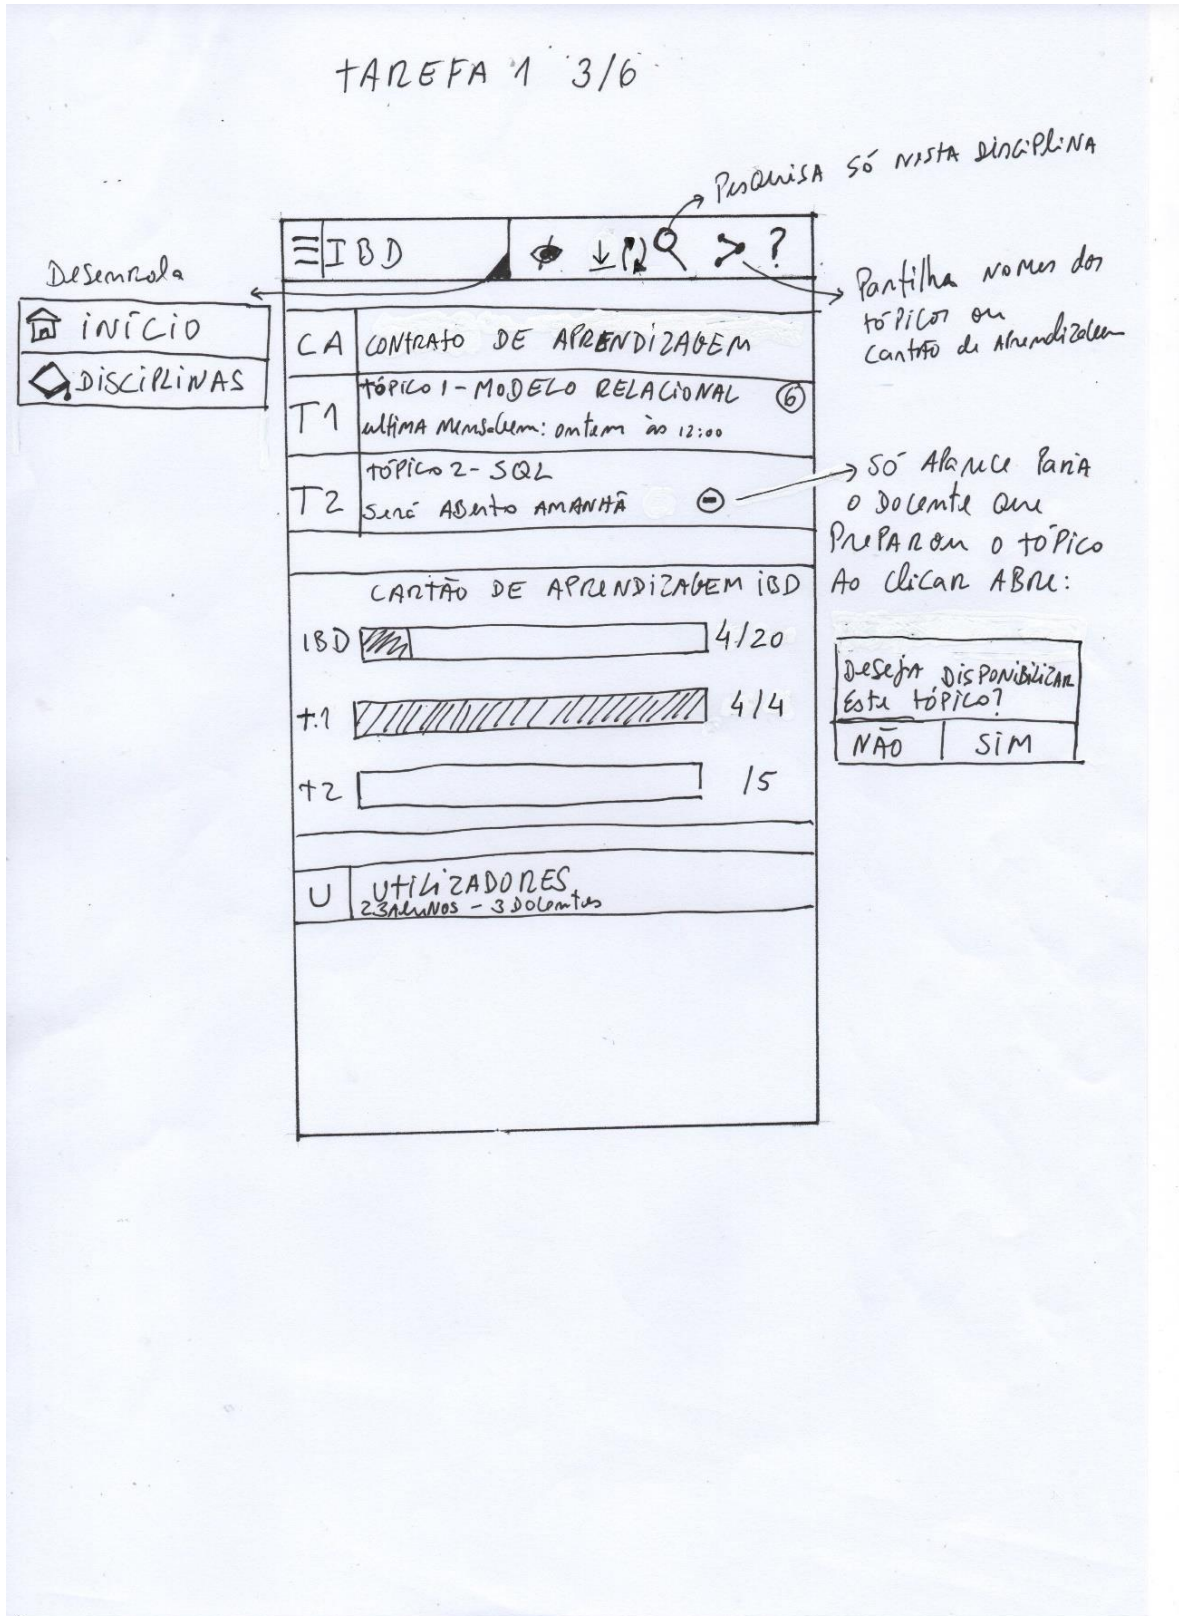 TAREFA 1 3/6
Pesquisa só nesta disciplina
IBD ?
Desenrola
INÍCIO
DISCIPLINAS
Partilha nomes dos
tópicos ou
cartão de Aprendizagem
CA CONTRATO DE APRENDIZAGEM
T1 TÓPICO 1 - MODELO RELACIONAL 6
ultima mensagem: ontem às 12:00
T2 TÓPICO 2 - SQL
Será ABerto AMANHÃ
SÓ Aparece Para
o Docente que
PrePARou o tóPico
Ao clicar ABre:
CARTÃO DE APRENDIZAGEM IBD
IBD 4/20
T.1 4/4
T2 /5
Deseja DISPONIBILIZAR
Este tópico?
NÃO SIM
U UTILIZADORES
23 Alunos - 3 Docentes